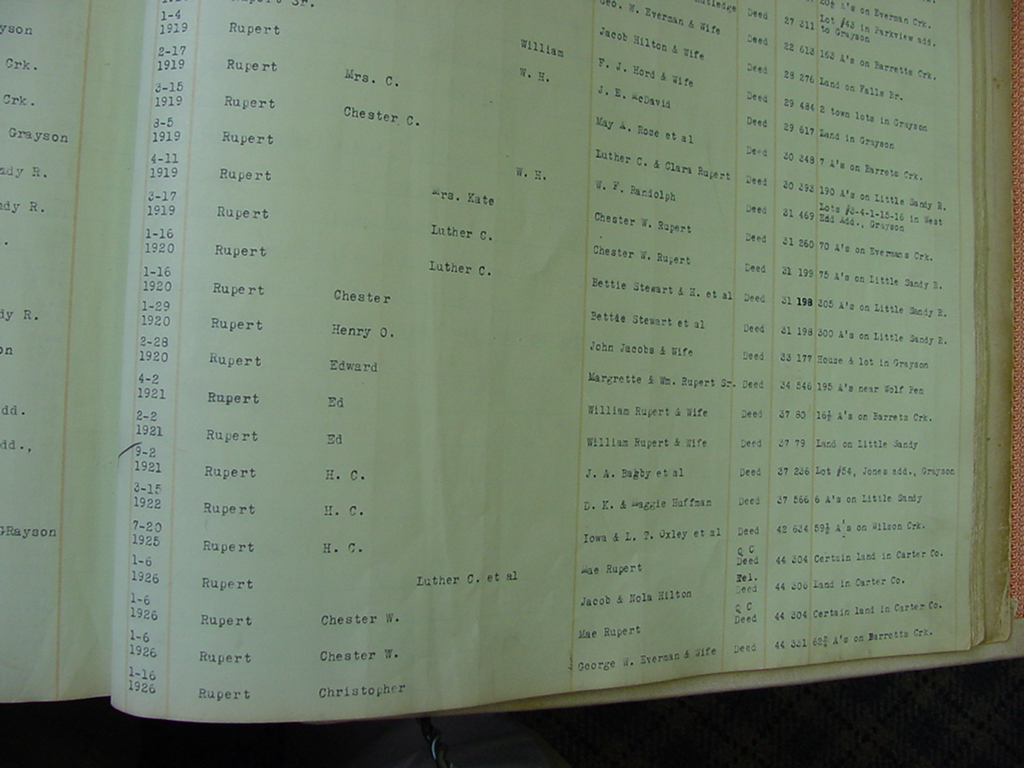 Rupert Sr. William F. J. Hord & Wife Deed 29 484 2 town lots in Grayson
1-4
1919 Rupert W. H. J. E. McDavid Deed 29 617 Land in Grayson
2-17
1919 Rupert Mrs. C. May A. Rose et al Deed 30 348 7 A's on Barrets Crk.
3-15
1919 Rupert Chester C. Luther C. & Clara Rupert Deed 30 393 190 A's on Little Sandy R.
3-5
1919 Rupert W. H. W. F. Randolph Deed 31 469 Lots #3-4-1-15-16 in West
End Add., Grayson
4-11
1919 Rupert Mrs. Kate Chester W. Rupert Deed 31 260 70 A's on Evermans Crk.
3-17
1919 Rupert Luther C. Chester W. Rupert Deed 31 199 75 A's on Little Sandy R.
1-16
1920 Rupert Luther C. Bettie Stewart & H. et al Deed 31 198 305 A's on Little Sandy R.
1-16
1920 Rupert Chester Bettie Stewart et al Deed 31 198 300 A's on Little Sandy R.
1-29
1920 Rupert Henry O. John Jacobs & Wife Deed 33 177 House & lot in Grayson
2-28
1920 Rupert Edward Margrette & Wm. Rupert Sr. Deed 34 546 195 A's near Wolf Pen
4-2
1921 Rupert Ed William Rupert & Wife Deed 37 80 16½ A's on Barrets Crk.
2-2
1921 Rupert Ed William Rupert & Wife Deed 37 79 Land on Little Sandy
9-2
1921 Rupert H. C. J. A. Bagby et al Deed 37 236 Lot #54, Jones add., Grayson
3-15
1922 Rupert H. C. D. K. & Maggie Huffman Deed 37 566 6 A's on Little Sandy
7-20
1925 Rupert H. C. Iowa & L. T. Oxley et al Deed 42 634 59½ A's on Wilson Crk.
1-6 Q C
1926 Rupert Luther C. et al Mae Rupert Deed 44 304 Certain land in Carter Co.
1-6 Rel.
1926 Rupert Chester W. Jacob & Nola Hilton Deed 44 306 Land in Carter Co.
1-6 Q C
1926 Rupert Chester W. Mae Rupert Deed 44 304 Certain land in Carter Co.
1-16
1926 Rupert Christopher George W. Everman & Wife Deed 44 331 A's on Barretts Crk.
Geo. W. Everman & Wife Deed 22 613 163 A's on Barretts Crk.
Jacob Hilton & Wife Deed 28 276 Land on Falls Br.
Deed 27 311 Lot #43 in Parkview add.
to Grayson
A's on Everman Crk.
Crk.
Crk.
Grayson
R.
R.
R.
GRayson